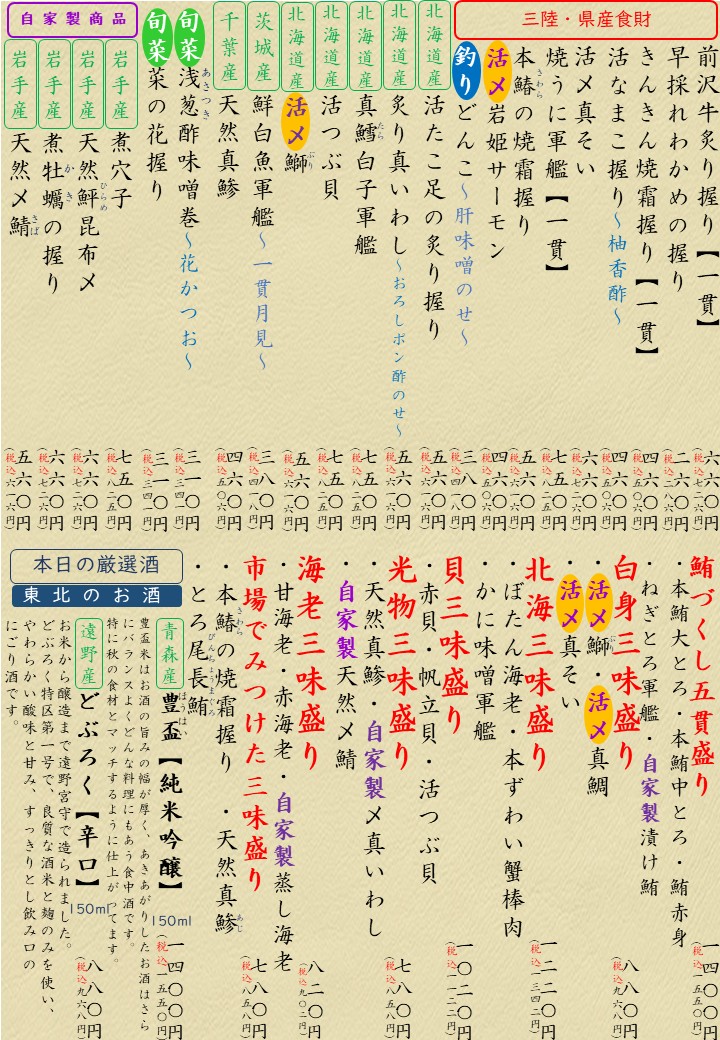 三陸・県産食財
前沢牛炙り握り【一貫】 六六〇円(税込七二六円)
早採れわかめの握り 二六〇円(税込二八六円)
きんきん焼霜握り【一貫】 四六〇円(税込五〇六円)
活なまこ握り〜柚香酢〜 五六〇円(税込六一六円)
活〆真そい 六六〇円(税込七二六円)
焼うに軍艦【一貫】 七五〇円(税込八二五円)
本鰆さわらの焼霜握り 五六〇円(税込六一六円)
活〆岩姫サーモン 四六〇円(税込五〇六円)
釣りどんこ〜肝味噌のせ〜 三八〇円(税込四一八円)
北海道産 活たこ足の炙り握り 五六〇円(税込六一六円)
北海道産 炙り真いわし〜おろしポン酢のせ〜 五六〇円(税込六一六円)
北海道産 真鱈たら白子軍艦 七五〇円(税込八二五円)
北海道産 活つぶ貝 七五〇円(税込八二五円)
北海道産 活〆鰤ぶり 五六〇円(税込六一六円)
茨城産 鮮白魚軍艦〜一貫月見〜 三八〇円(税込四一八円)
千葉産 天然真鯵 四六〇円(税込五〇六円)
旬菜 浅葱あさつき酢味噌巻〜花かつお〜 三一〇円(税込三四一円)
旬菜 菜の花握り 三一〇円(税込三四一円)
自家製商品
岩手産 煮穴子 七五〇円(税込八二五円)
岩手産 天然鮃ひらめ昆布〆 六六〇円(税込七二六円)
岩手産 煮牡蠣かきの握り 六六〇円(税込七二六円)
岩手産 天然〆鯖さば 五六〇円(税込六一六円)
鮪づくし五貫盛り
・本鮪大とろ・本鮪中とろ・鮪赤身 一四〇〇円(税込一五五〇円)
・ねぎとろ軍艦・自家製漬け鮪
白身三味盛り
・活〆鰤ぶり・活〆真鯛 八八〇円(税込九六八円)
・活〆真そい
北海三味盛り
・ぼたん海老・本ずわい蟹棒肉 一二二〇円(税込一三四二円)
・かに味噌軍艦
貝三味盛り
・赤貝・帆立貝・活つぶ貝 一〇二〇円(税込一一二二円)
光物三味盛り
・天然真鯵・自家製〆真いわし 七八〇円(税込八五八円)
・自家製天然〆鯖
海老三味盛り
・甘海老・赤海老・自家製蒸し海老 八二〇円(税込九〇二円)
市場でみつけた三味盛り
・本鰆さわらの焼霜握り ・天然真鯵あじ 七八〇円(税込八五八円)
・とろ尾長鮪びんちょうまぐろ
本日の厳選酒
東北のお酒
青森産 豊盃ほうはい【純米吟醸】 150ml 一四〇〇円(税込一五五〇円)
豊盃米はお酒の旨みの幅が厚く、あきあがりしたお酒はさら
にバランスよくどんな料理にもあう食中酒です。
特に秋の食材とマッチするように仕上がってます。
遠野産 どぶろく【辛口】 150ml 八八〇円(税込九六八円)
お米から醸造まで遠野宮守で造られました。
どぶろく特区第一号で、良質な酒米と麹のみを使い、
やわらかい酸味と甘み、すっきりとし飲み口の
にごり酒です。